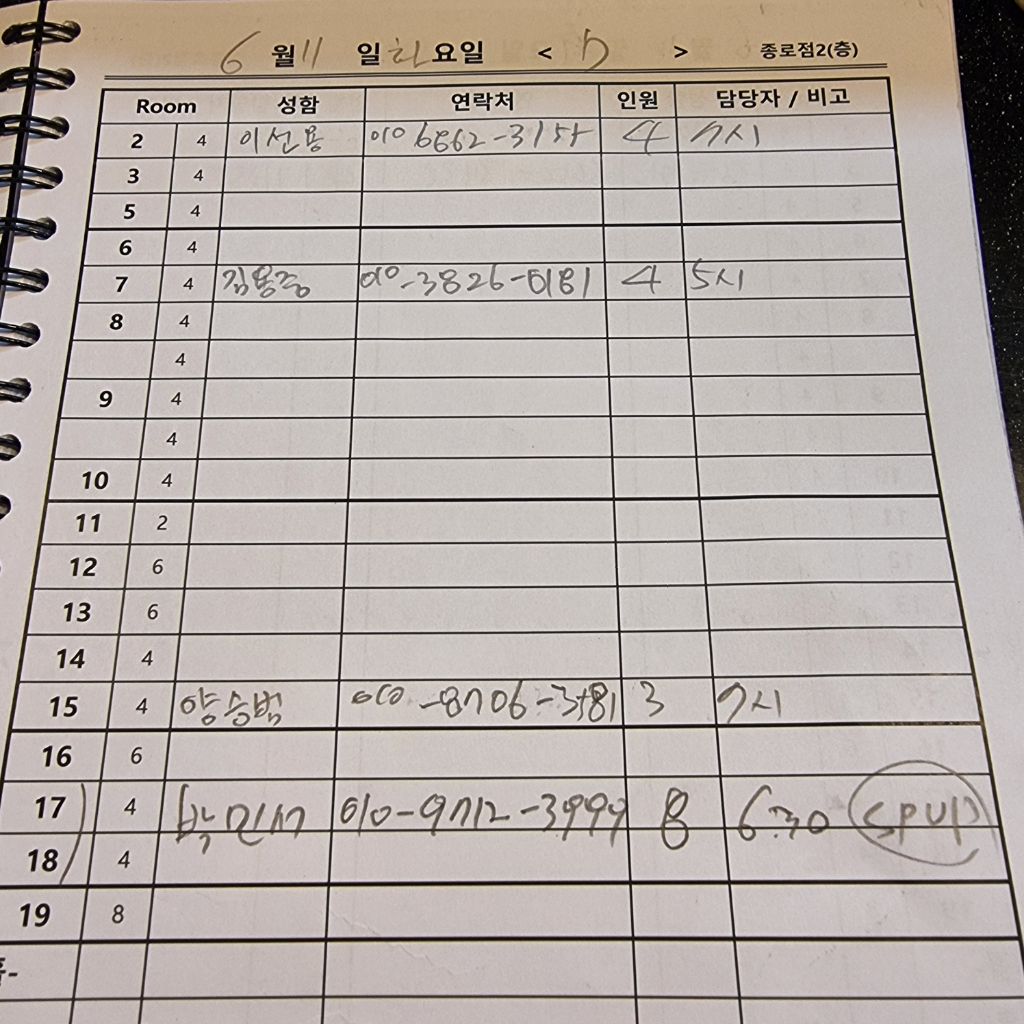 6 월 11 일 화 요일 < D > 종로점2(층)
Room 성함 연락처 인원 담당자 / 비고
2 4 이선용 010 6862-3155 4 7시
3 4
5 4
6 4
7 4 김용중 010-3826-0181 4 5시
8 4
4
9 4
4
10 4
11 2
12 6
13 6
14 4
15 4 양승범 010-8706-3581 3 7시
16 6
17 4 박민서 010-9712-3999 8 6:30
18 4
19 8